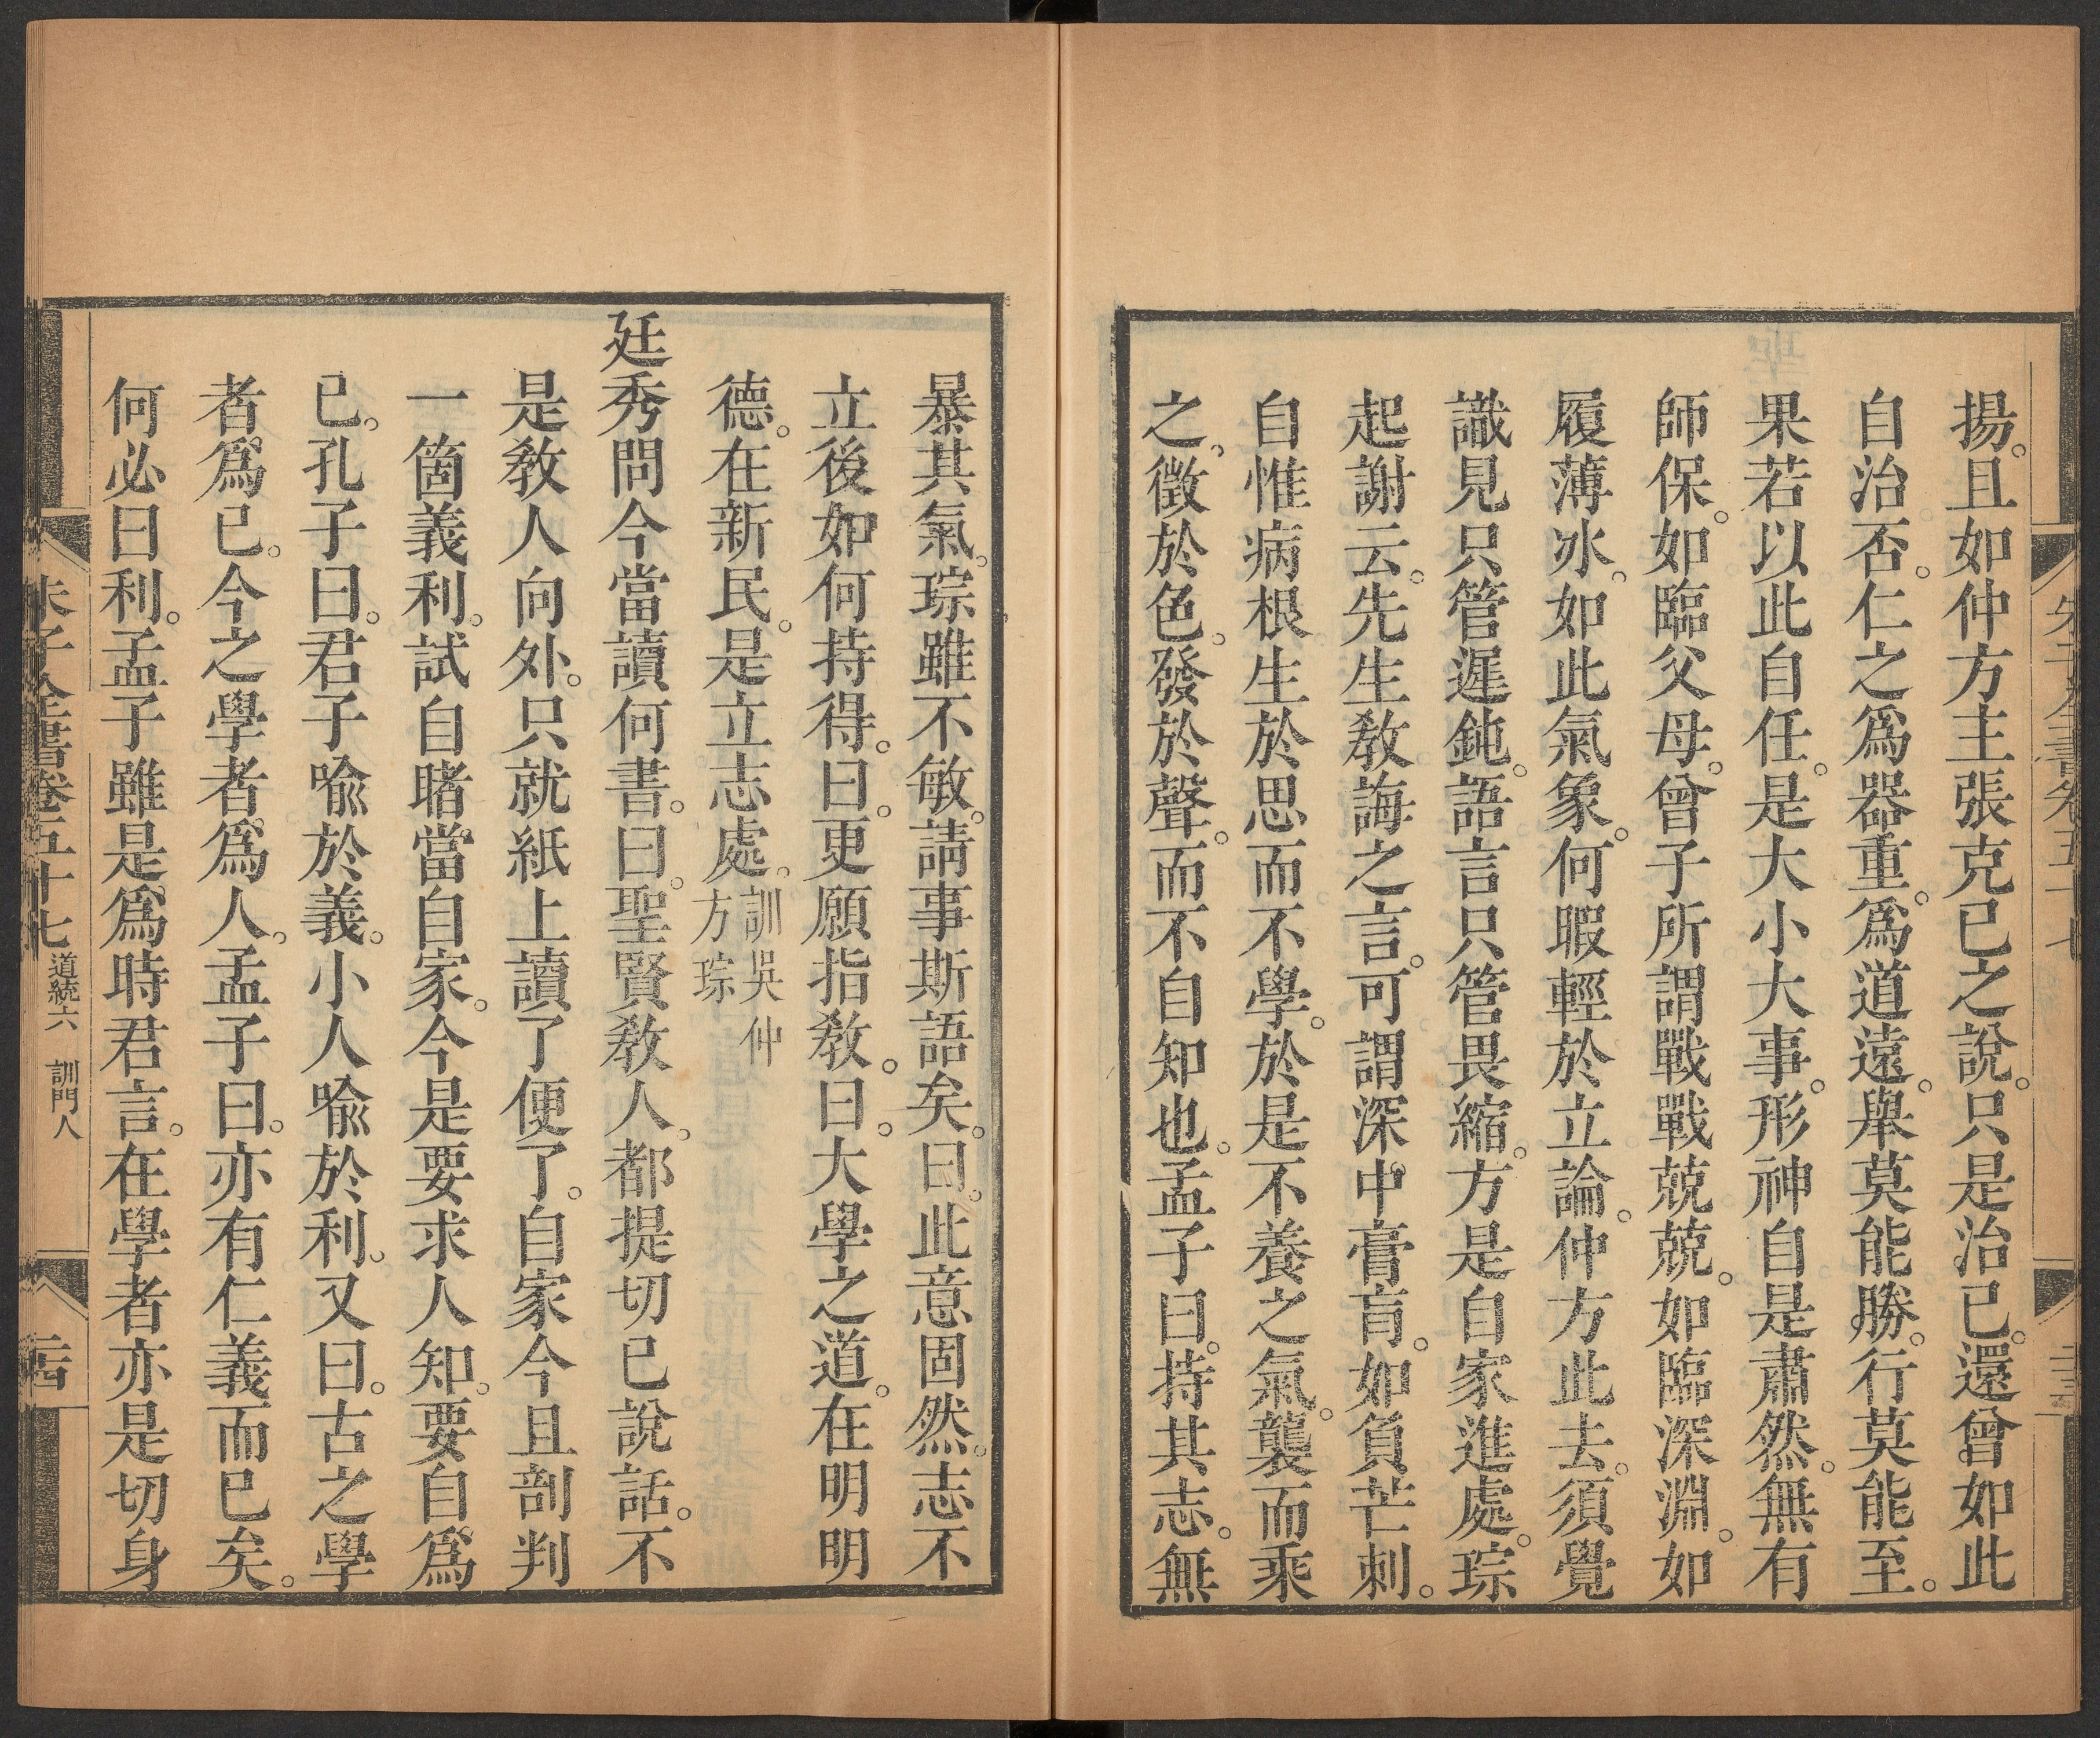 揚。且如仲方主張克己之說。只是治己。還曾如此
自治否。仁之爲器重。爲道遠。舉莫能勝。行莫能至。
果若以此自任。是大小大事。形神自是肅然。無有
師保。如臨父母。曾子所謂戰戰兢兢。如臨深淵。如
履薄冰。如此氣象。何暇輕於立論。仲方此去。須覺
識見只管遲鈍。語言只管畏縮。方是自家進處。琮
起謝云。先生教誨之言。可謂深中膏肓。如負芒刺。
自惟病根生於思而不學。於是不養之氣。襲而乘
之。徵於色。發於聲。而不自知也。孟子曰。持其志。無
朱子全書卷五十七
暴其氣。琮雖不敏。請事斯語矣。曰。此意固然。志不
立後如何持得。曰。更願指教。曰。大學之道。在明明
德。在新民。是立志處。訓吳仲
方琮
廷秀問今當讀何書。曰。聖賢教人。都提切己說話。不
是教人向外。只就紙上讀了便了。自家今且剖判
一箇義利。試自睹當自家。今是要求人知。要自爲
己。孔子曰。君子喩於義。小人喩於利。又曰。古之學
者。爲己。今之學者。爲人。孟子曰。亦有仁義而已矣。
何必曰利。孟子雖是爲時君言。在學者亦是切身
朱子全書卷五十七 道統六 訓門人